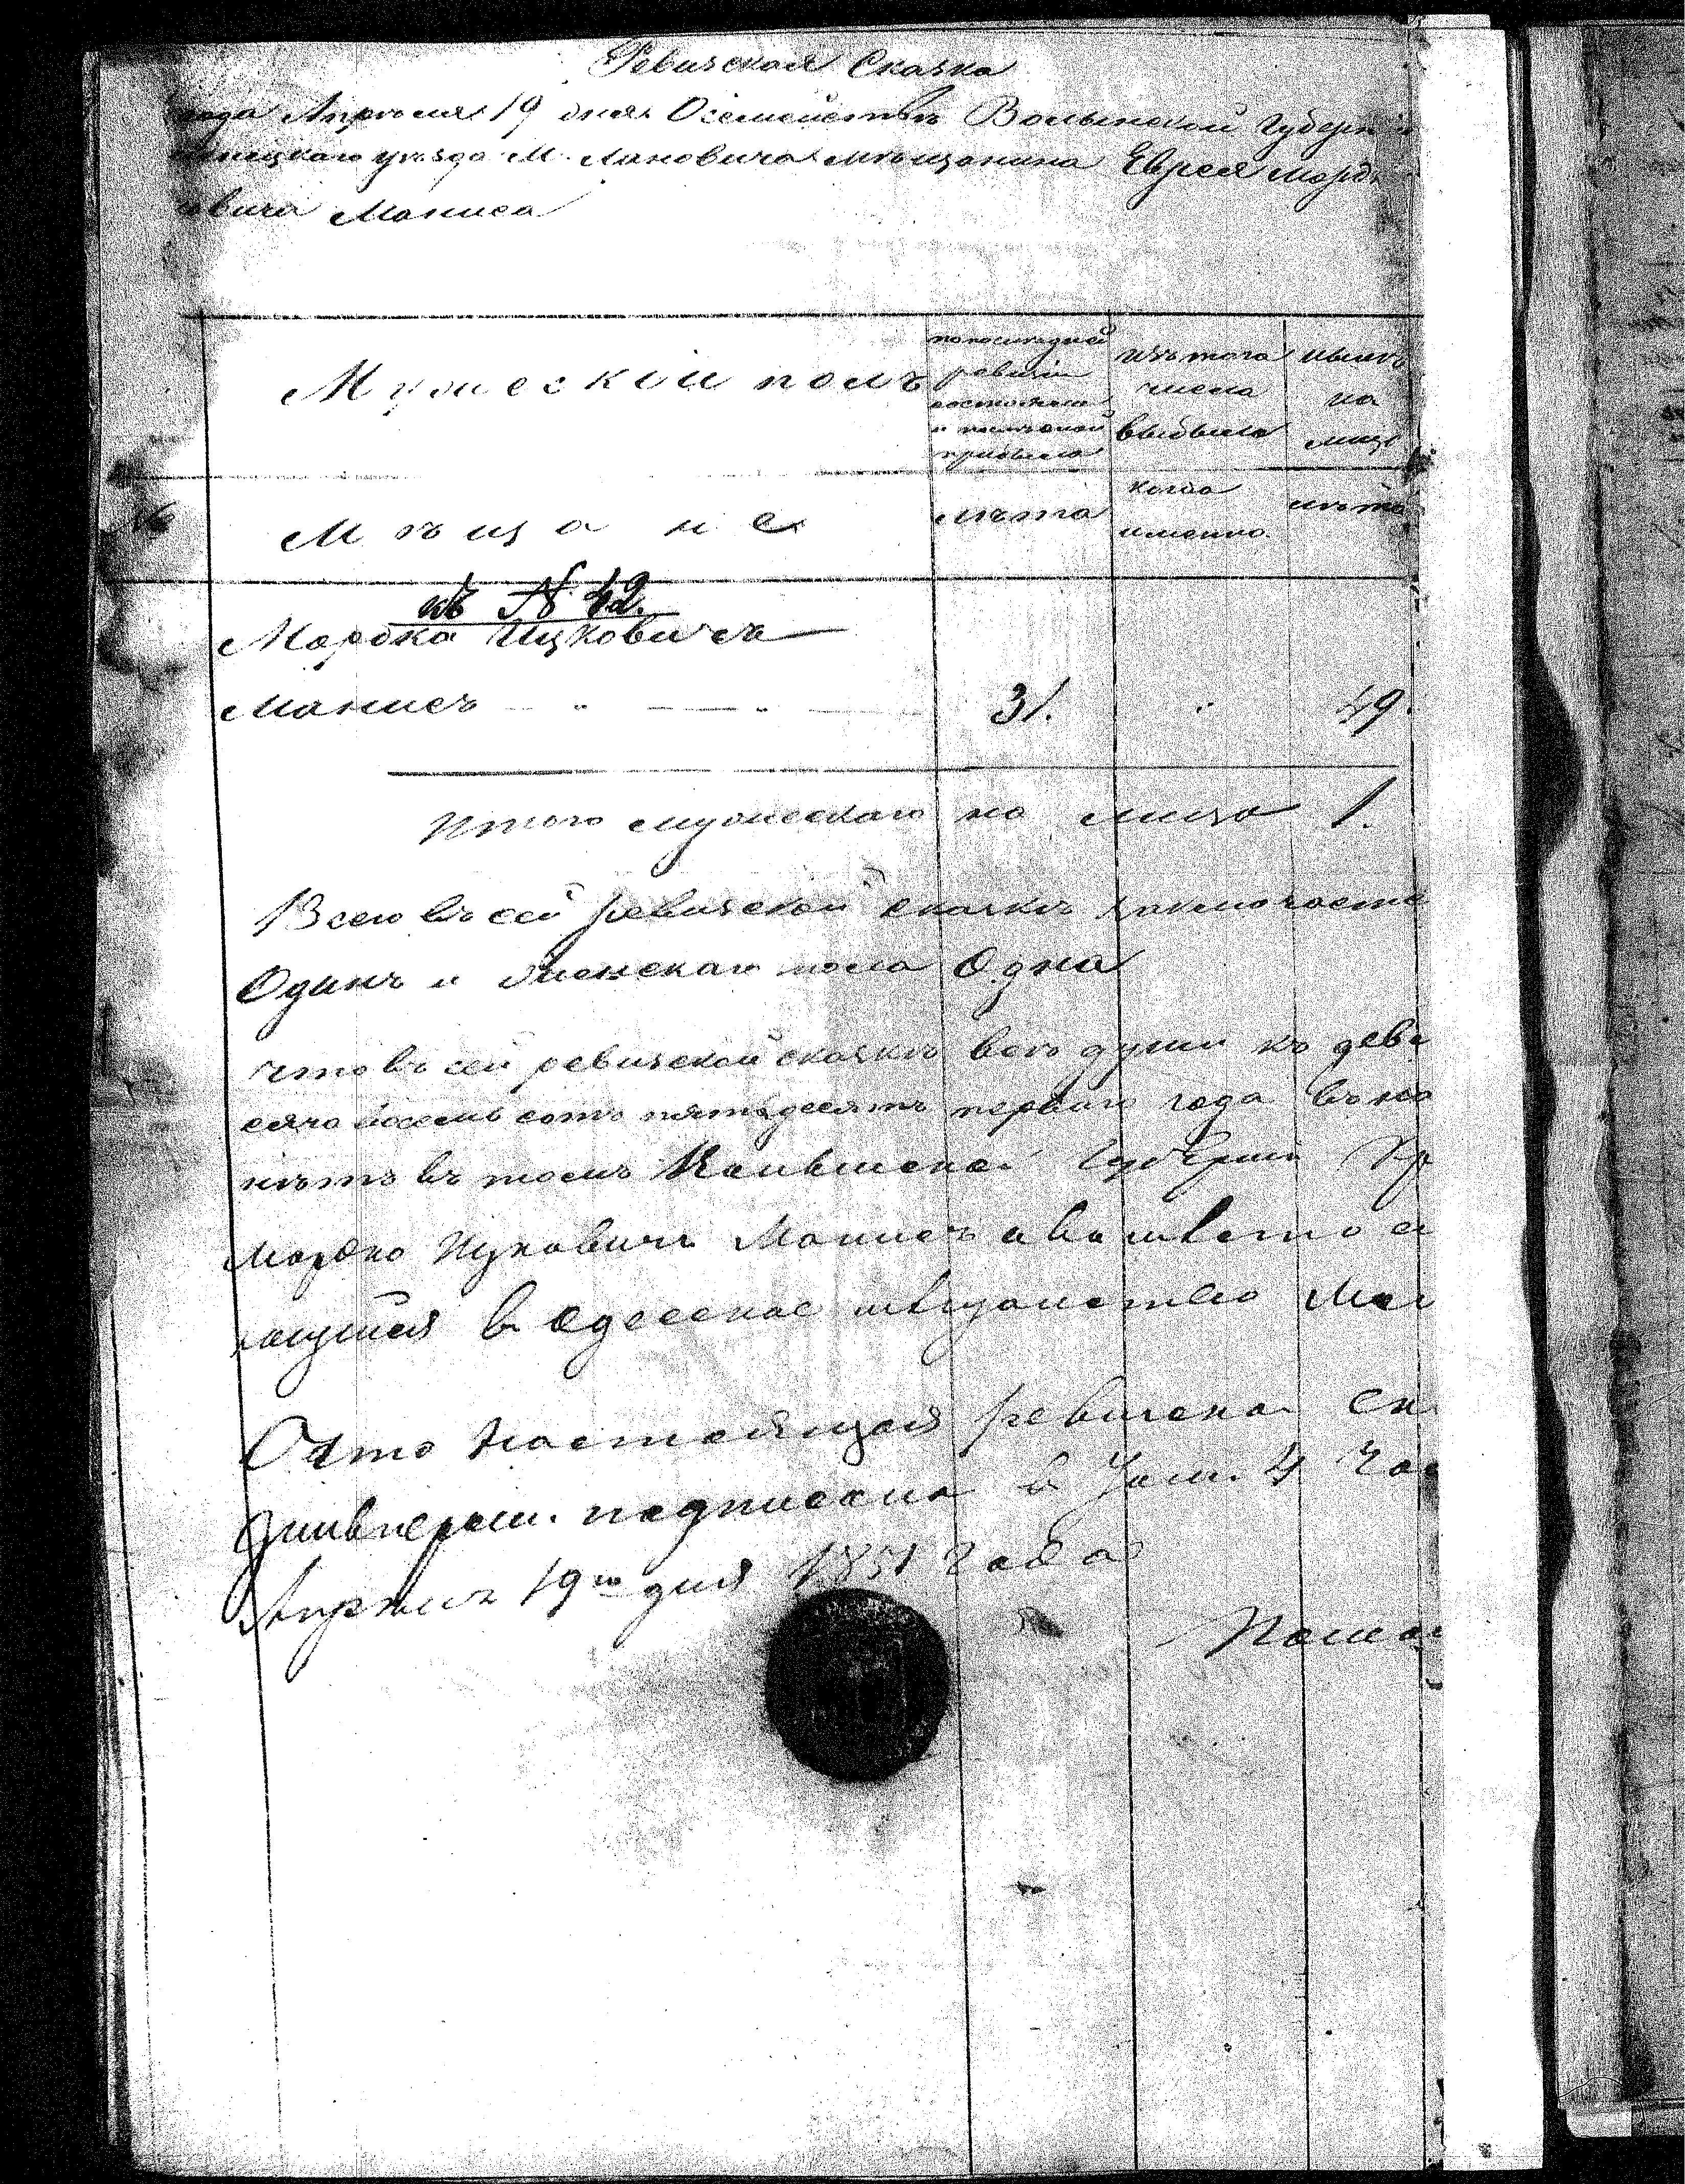 Ревизская Сказка
года Апрѣля 19 дня О семействѣ Волынской Губерн
менецкаго уѣзда М. Лановича мѣщанина Еврея Морд
овича Маниса
Мужескій полъ
по последней
ревизіи
состояло
и после оной
прибыло
изъ того
числа
выбыло
нынѣ
на
лицо
№
Мѣщане
лѣта
когда
именно
лѣта
къ № 42.
Мордко Ицковичъ
Манисъ 31. 49.
Итого мужескаго на лицо 1.
Всего въ сей ревизской сказкѣ заключаетс
Одинъ и женскаго пола Одна
что въ сей ревизской сказкѣ все души къ девя
сяча восемь сотъ пятьдесятъ перваго года въ на
нѣтъ въ томъ Волынской Губерніи Кр
Мордко Ицковичъ Манисъ а вместо
в одесское мѣщанство
Что настоящая ревизская ск
подписана в 4 час
Апрѣля 19го дня 1851 года